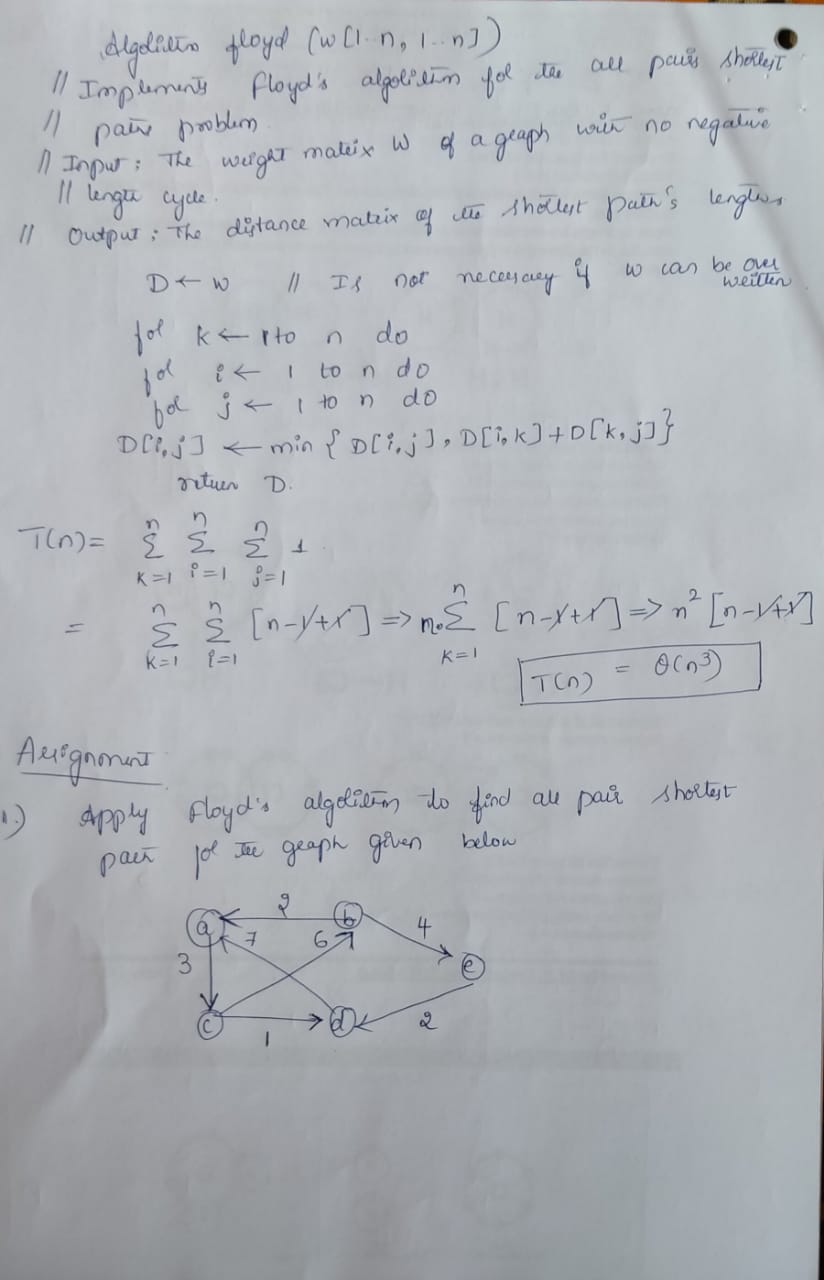 Algorithm floyd (W[1..n, 1..n])
// Implements Floyd's algorithm for the all pairs shortest
// paths problem
// Input: The weight matrix W of a graph with no negative
// length cycle.
// Output: The distance matrix of the shortest path's lengths
D ← W // Is not necessary if W can be over
written
for k ← 1 to n do
for i ← 1 to n do
for j ← 1 to n do
D[i,j] ← min { D[i,j], D[i,k] + D[k,j] }
return D.
T(n) = n∑k=1 n∑i=1 n∑j=1 1
= n∑k=1 n∑i=1 [n-1+1] => n. n∑k=1 [n-1+1] => n² [n-1+1]
T(n) = θ(n³)
Assignment
1.) Apply Floyd's algorithm to find all pair shortest
path for the graph given below
a 2 b 4
7 6
3 e
c d
1 2